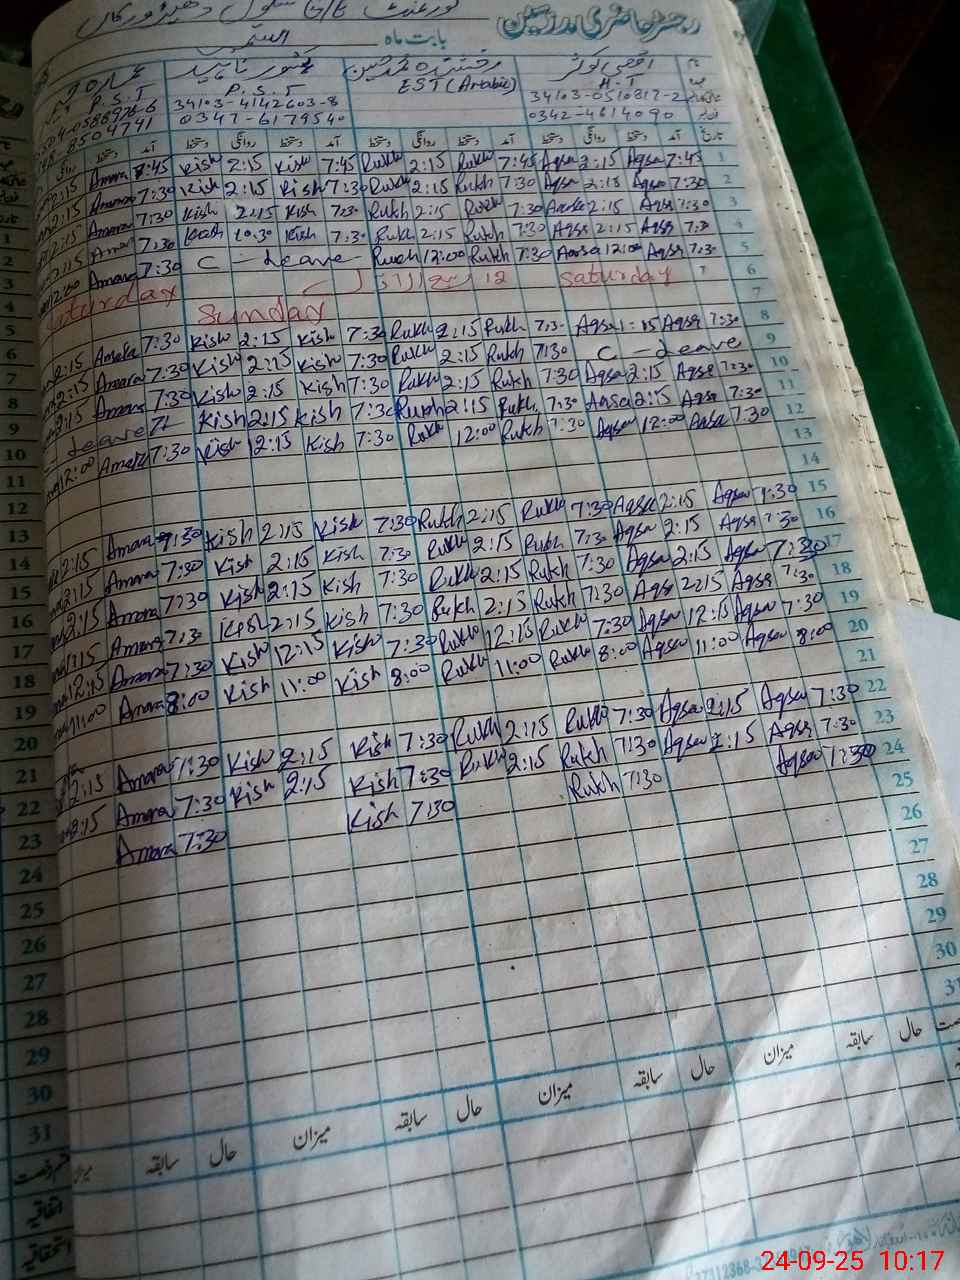 گورنمنٹ گرلز سکول
رجسٹر حاضری مدرسین
بابت ماہ ستمبر
اقصیٰ کوثر کشور ناہید
H.T EST (Arabic) P.S.T P.S.T
34103-0510817-2 34103-4142603-8
0342-4614090 0347-6179540
تاریخ آمد دستخط روانگی دستخط آمد دستخط روانگی دستخط آمد دستخط روانگی دستخط آمد دستخط
1 7:45 Aqsa 2:15 Aqsa 7:45 Rukh 2:15 Rukh 7:45 Kish 2:15 Kish 7:45 Amara 2:15
2 7:30 Aqsa 2:15 Aqsa 7:30 Rukh 2:15 Rukh 7:30 Kish 2:15 Kish 7:30 Amara 2:15
3 7:30 Aqsa 2:15 Aqsa 7:30 Rukh 2:15 Rukh 7:30 Kish 2:15 Kish 7:30 Amara 2:15
4 7:30 Aqsa 2:15 Aqsa 7:30 Rukh 2:15 Rukh 7:30 Kish 10:30 Kish 7:30 Amara 2:15
5 7:30 Aqsa 12:00 Aqsa 7:30 Rukh 12:00 Rukh C - Leave 7:30 Amara 12:00
6 Saturday 12 ربیع الاول Saturday
7 Sunday
8 7:30 Aqsa 1:15 Aqsa 7:30 Rukh 2:15 Rukh 7:30 Kish 2:15 Kish 7:30 Amara 2:15
9 C - Leave 7:30 Rukh 2:15 Rukh 7:30 Kish 2:15 Kish 7:30 Amara 2:15
10 7:30 Aqsa 2:15 Aqsa 7:30 Rukh 2:15 Rukh 7:30 Kish 2:15 Kish 7:30 Amara 2:15
11 7:30 Aqsa 2:15 Aqsa 7:30 Rukh 2:15 Rukh 7:30 Kish 2:15 Kish Leave
12 7:30 Aqsa 12:00 Aqsa 7:30 Rukh 12:00 Rukh 7:30 Kish 12:15 Kish 7:30 Amara 12:00
13
14
15 7:30 Aqsa 2:15 Aqsa 7:30 Rukh 2:15 Rukh 7:30 Kish 2:15 Kish 7:30 Amara 2:15
16 7:30 Aqsa 2:15 Aqsa 7:30 Rukh 2:15 Rukh 7:30 Kish 2:15 Kish 7:30 Amara 2:15
17 7:30 Aqsa 2:15 Aqsa 7:30 Rukh 2:15 Rukh 7:30 Kish 2:15 Kish 7:30 Amara 2:15
18 7:30 Aqsa 2:15 Aqsa 7:30 Rukh 2:15 Rukh 7:30 Kish 2:15 Kish 7:30 Amara
19 7:30 Aqsa 12:15 Aqsa 7:30 Rukh 12:15 Rukh 7:30 Kish 12:15 Kish 7:30 Amara 12:15
20 8:00 Aqsa 11:00 Aqsa 8:00 Rukh 11:00 Rukh 8:00 Kish 11:00 Kish 8:00 Amara 11:00
21
22 7:30 Aqsa 2:15 Aqsa 7:30 Rukh 2:15 Rukh 7:30 Kish 2:15 Kish 7:30 Amara 2:15
23 7:30 Aqsa 2:15 Aqsa 7:30 Rukh 2:15 Rukh 7:30 Kish 2:15 Kish 7:30 Amara 2:15
24 7:30 Aqsa 7:30 Rukh 7:30 Kish 7:30 Amara
25
26
27
28
29
30
31
حال سابقہ میزان حال سابقہ میزان حال سابقہ میزان حال سابقہ میزان
اتفاقیہ
استحقاقیہ
24-09-25 10:17